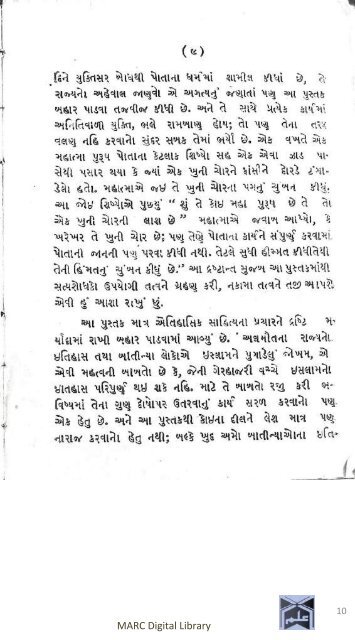 (૯)
હિને યુક્તિસર બોધથી પોતાના ધર્મમાં શામીલ કીધાં છે, તે
રાજ્યનો અહેવાલ જાણવો એ અગત્યનું જણાતાં પણ આ પુસ્તક
બહાર પાડવા તજવીજ કીધી છે. અને તે સાથે પ્રત્યેક કાર્યમાં
અનિતિવાળી યુક્તિ, ભલે રામબાણ હોય; તો પણ તેના તરફ
વલણ નહિ કરવાનો સુંદર સબક તેમાં ભર્યો છે. એક વખતે એક
મહાત્મા પુરૂષ પોતાના કેટલાક શિષ્યો સહ એક એવા ઝાડ પા-
સેથી પસાર થયા કે જ્યાં એક ખુની ચોરને ફાંસીને દોરડે ટંગા-
ડેલો હતો. મહાત્માએ જઈ તે ખુની ચોરના પગનું ચુંબન કીધું,
આ જોઈ શિષ્યોએ પુછ્યું "શું તે કોઈ મહા પુરૂષ છે તે તો
એક ખુની ચોરની લાશ છે" મહાત્માએ જવાબ આપ્યો, કે
ખરેખર તે ખુની ચોર છે; પણ તેણે પોતાના કાર્યને સંપુર્ણ કરવામાં
પોતાની જાનની પણ પરવા કીધી નથી. તેટલે સુધી હીમ્મત કીધીતેથી
તેની હિંમતનું ચુંબન કીધું છે." આ દ્રષ્ટાન્ત મુજબ આ પુસ્તકમાંથી
સત્યશોધકો ઉપયોગી તત્વને ગ્રહણ કરી, નકામા તત્વને તજી આપશે
એવી હું આશા રાખું છું.
આ પુસ્તક માત્ર ઐતિહાસિક સાહિત્યના પ્રચારને દ્રષ્ટિ મ-
ર્યાદામાં રાખી બહાર પાડવામાં આવ્યું છે. 'અલમોતના રાજ્યનો
ઈતિહાસ તથા બાતીન્યા લોકોએ ઇસ્લામને પુગાડેલું જોખમ, એ
એવી મહત્વની બાબતો છે કે, જેની ગેરહાજરી વચ્ચે ઇસલામનો
ઈતિહાસ પરિપુર્ણ થઈ શકે નહિ. માટે તે બાબતો રજુ કરી ભ-
વિષ્યમાં તેના ગુણ દોષોપર ઉતરવાનું કાર્ય સરળ કરવાનો પણ
એક હેતુ છે. અને આ પુસ્તકથી કોઈના દીલને લેશ માત્ર પણ
નારાજ કરવાનો હેતુ નથી; બલ્કે ખુદ અમો બાતીન્યાઓના ઇતિ-
10
MARC Digital Library